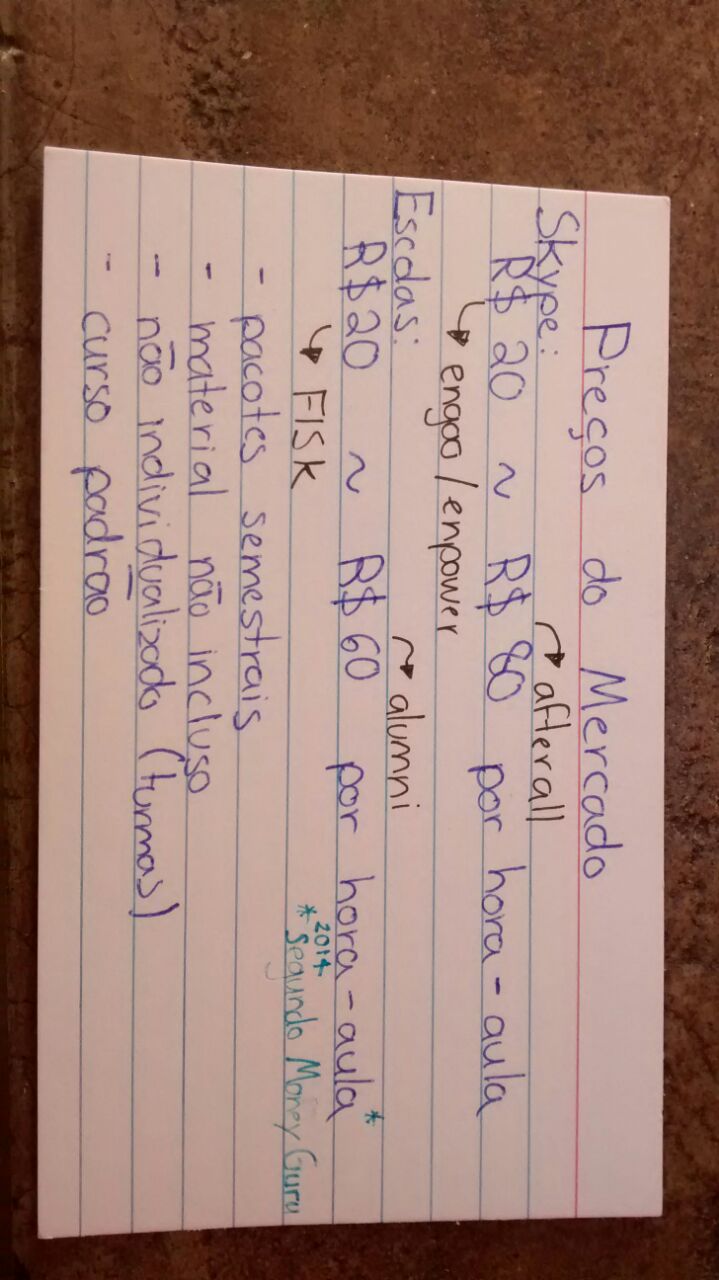 Preços do Mercado
Skype:
↷ afterall
R$ 20 ~ R$ 80 por hora-aula
↳ engoo/enpower
Escolas:
↷ alumni
R$20 ~ R$60 por hora-aula*
↳ FISK
*2014 Segundo Money Guru
- pacotes semestrais
- material não incluso
- não individualizado (turmas)
- curso padrão